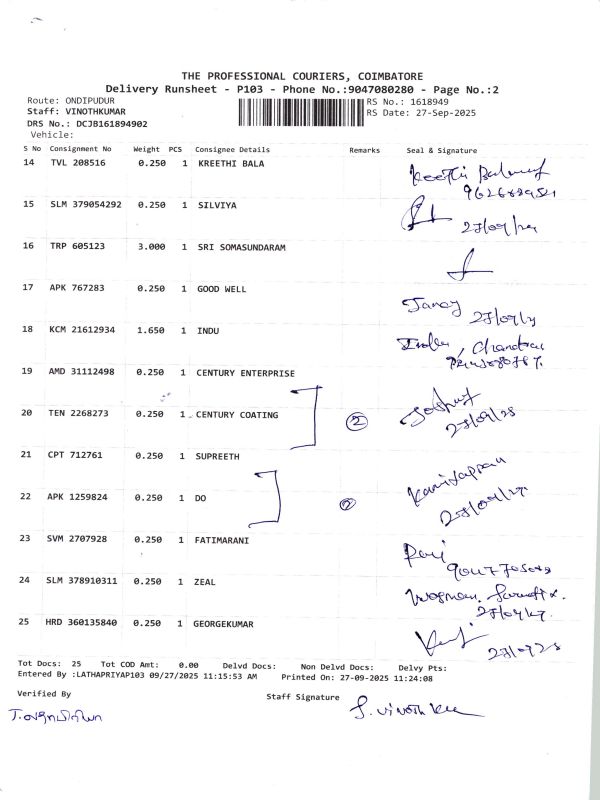 THE PROFESSIONAL COURIERS, COIMBATORE
Delivery Runsheet - P103 - Phone No.:9047080280 - Page No.:2
Route: ONDIPUDUR
RS No.: 1618949
Staff: VINOTHKUMAR
RS Date: 27-Sep-2025
DRS No.: DCJB161894902
Vehicle:
S No Consignment No Weight PCS Consignee Details Remarks Seal & Signature
14 TVL 208516 0.250 1 KREETHI BALA
15 SLM 379054292 0.250 1 SILVIYA
16 TRP 605123 3.000 1 SRI SOMASUNDARAM
17 APK 767283 0.250 1 GOOD WELL
18 KCM 21612934 1.650 1 INDU
19 AMD 31112498 0.250 1 CENTURY ENTERPRISE
20 TEN 2268273 0.250 1 CENTURY COATING
2
21 CPT 712761 0.250 1 SUPREETH
22 APK 1259824 0.250 1 DO
2
23 SVM 2707928 0.250 1 FATIMARANI
24 SLM 378910311 0.250 1 ZEAL
25 HRD 360135840 0.250 1 GEORGEKUMAR
Tot Docs: 25 Tot COD Amt: 0.00 Delvd Docs: Non Delvd Docs: Delvy Pts:
Entered By :LATHAPRIYAP103 09/27/2025 11:15:53 AM Printed On: 27-09-2025 11:24:08
Verified By
Staff Signature